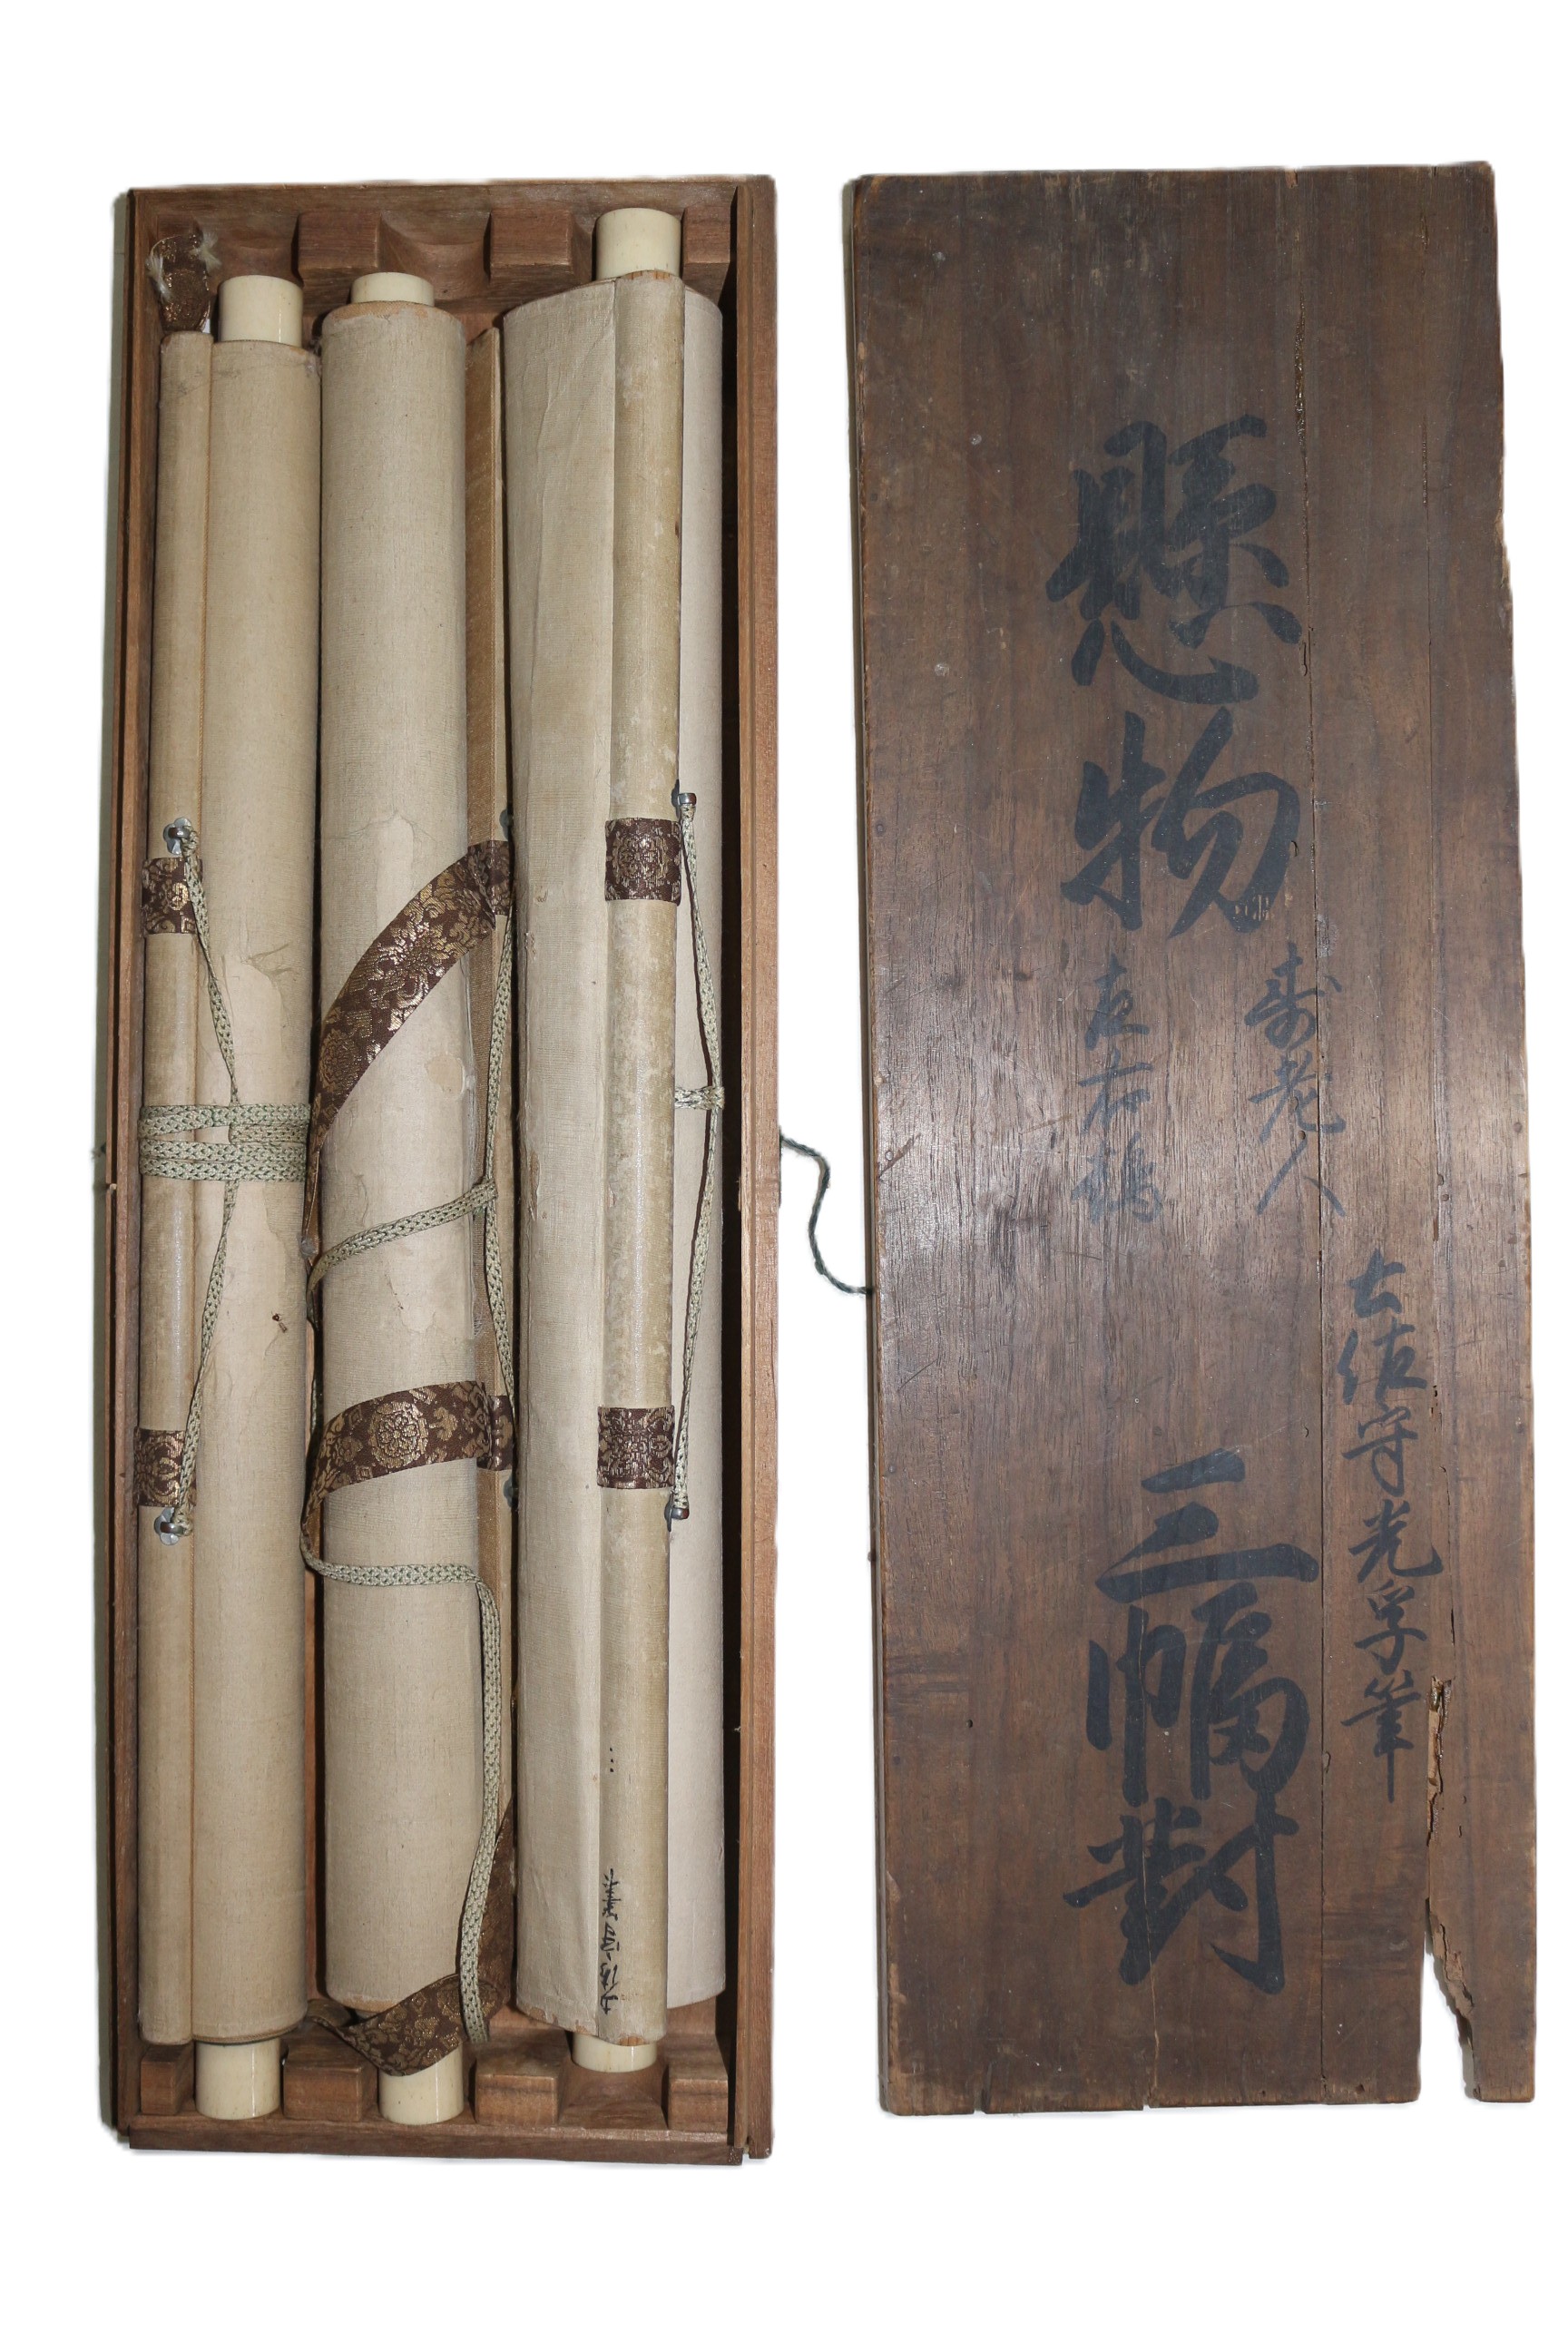 懸物
壽老人
左右鶴
三幅對
土佐守光孚筆